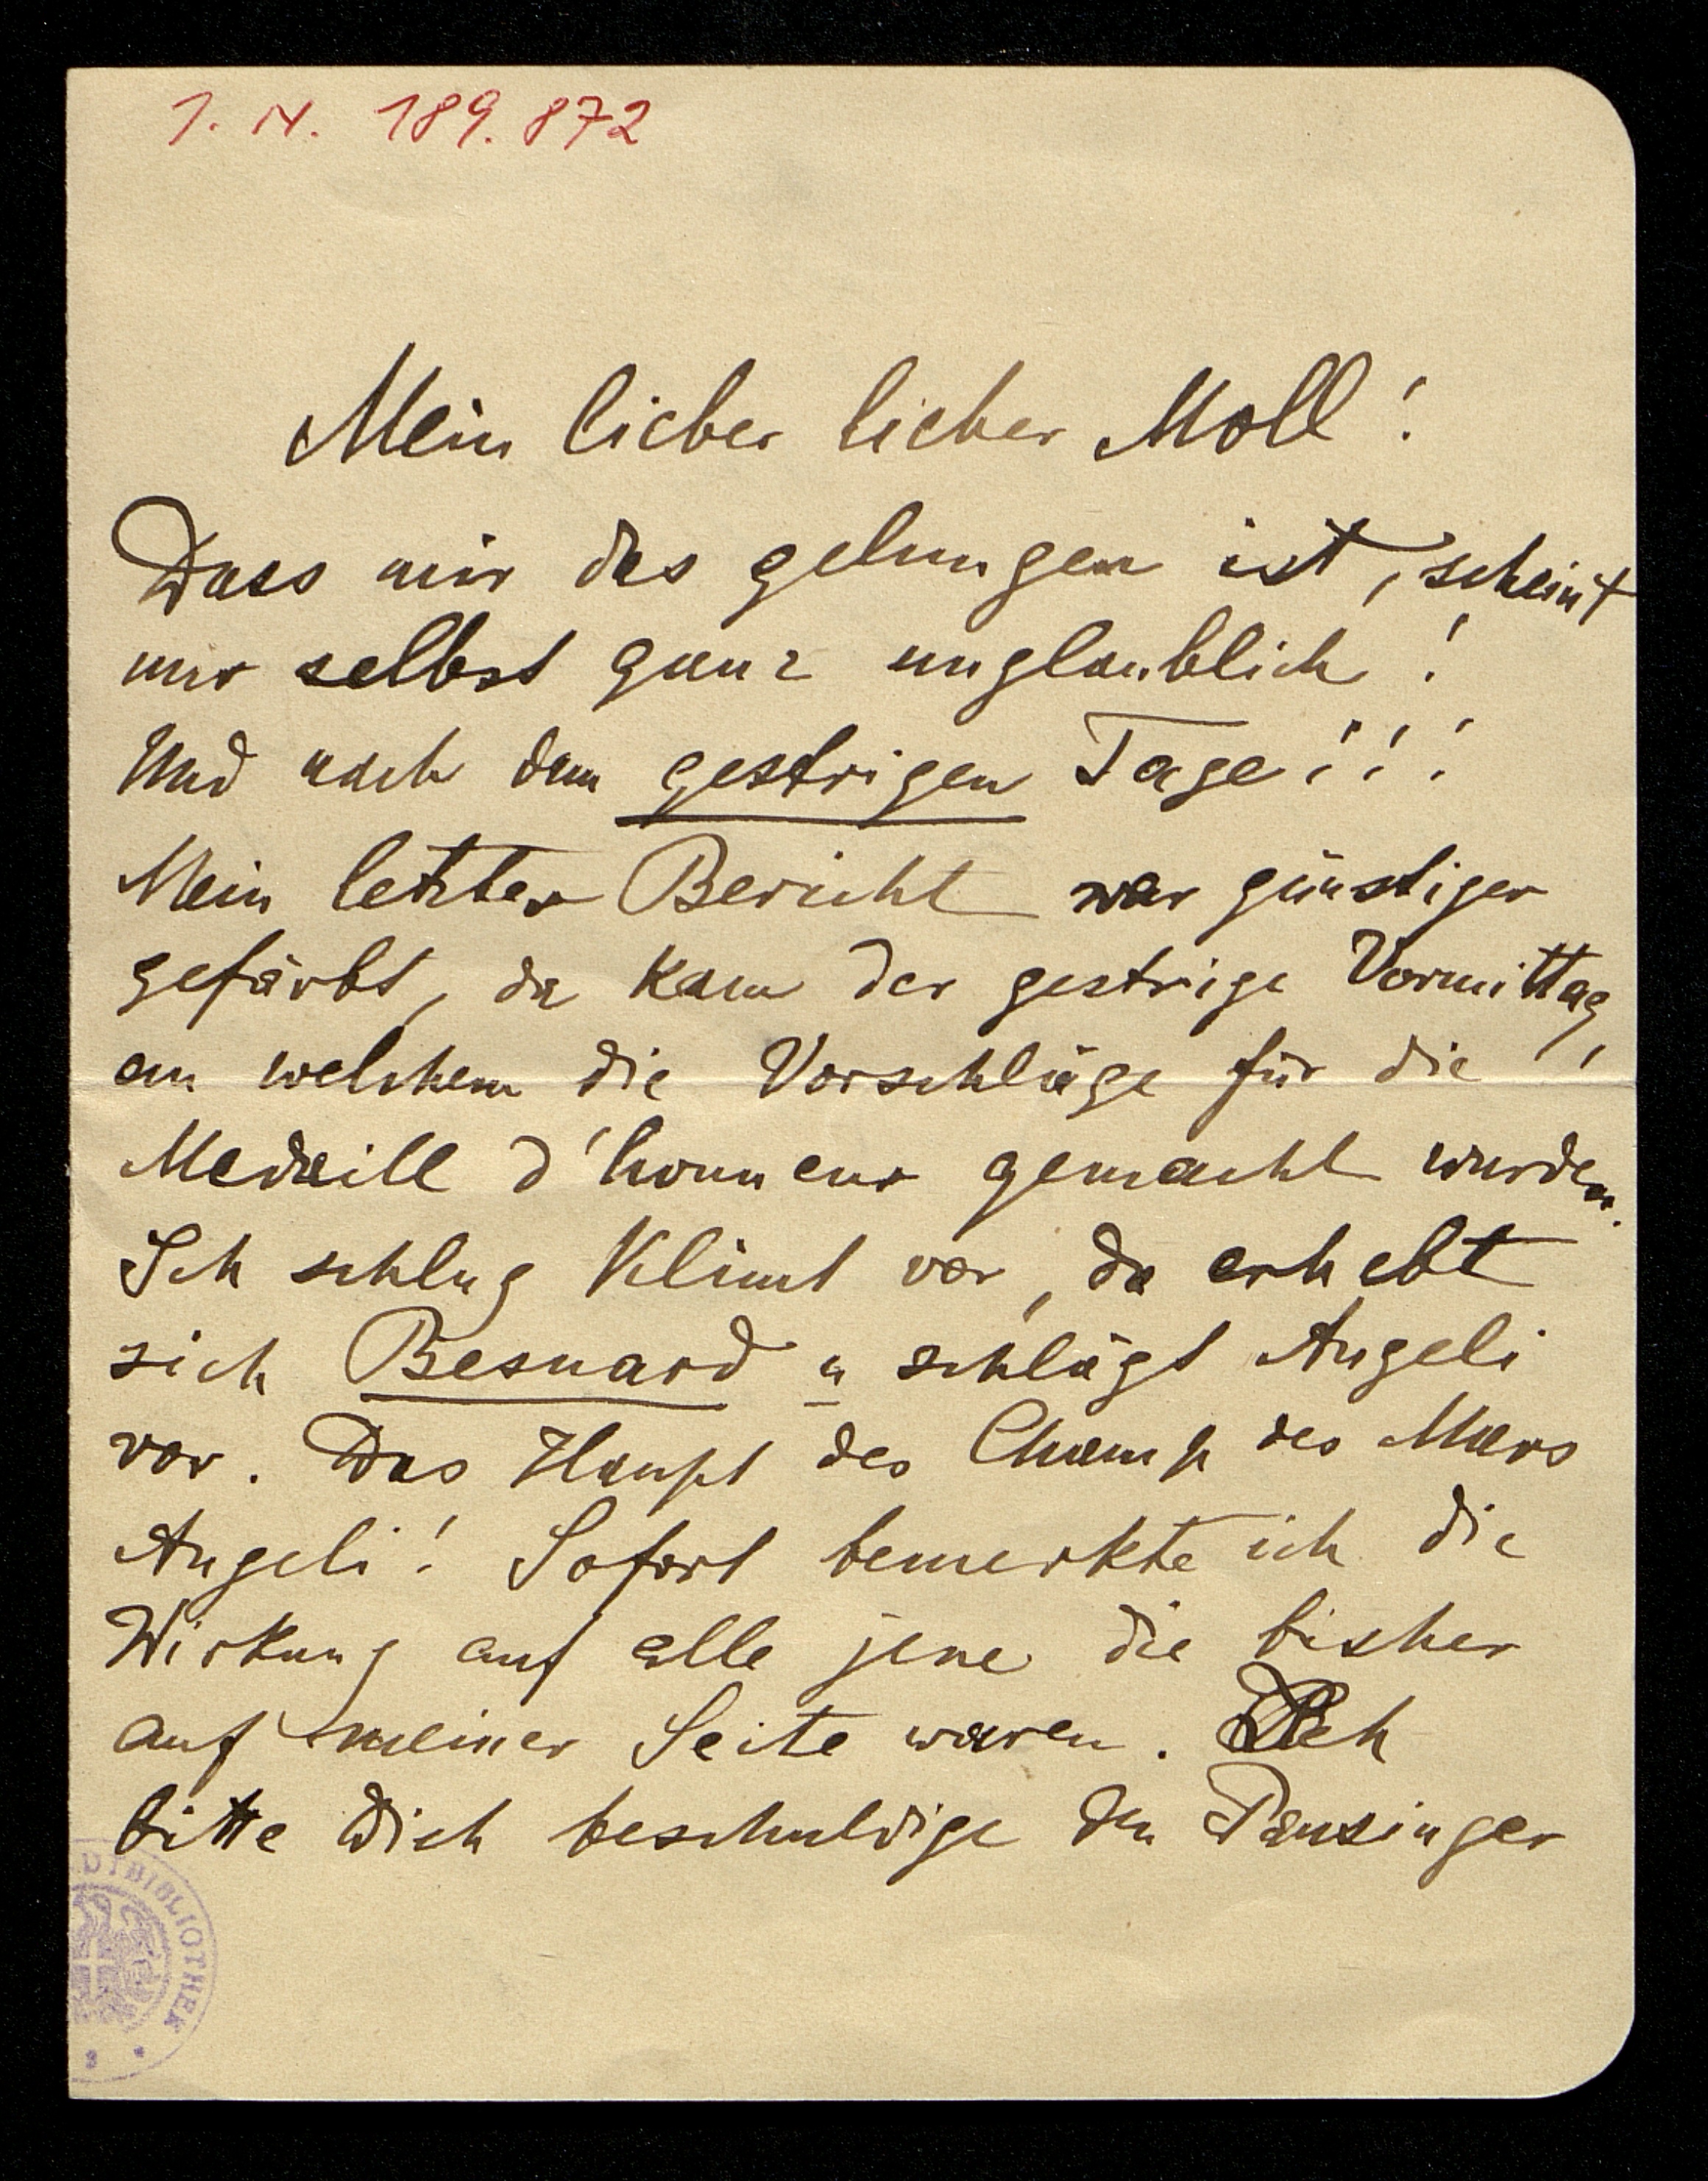 I. N. 189.872
Mein lieber lieber Moll!
Dass mir das gelungen ist, scheint
mir selbst ganz unglaublich!
Und nach dem gestrigen Tage!!!
Mein letzter Bericht war günstiger
gefärbt, da kam der gestrige Vormittag,
an welchem die Vorschläge für die
Medaill d'honneur gemacht wurden.
Ich schlug Klimt vor, da erhebt
sich Besnard u schlägt Angeli
vor. Das Haupt des Champ des Mars
Angeli! Sofort bemerkte ich die
Wirkung auf alle jene die bisher
auf meiner Seite waren. Ich
bitte Dich beschuldige den
DTBIBLIOTHEK